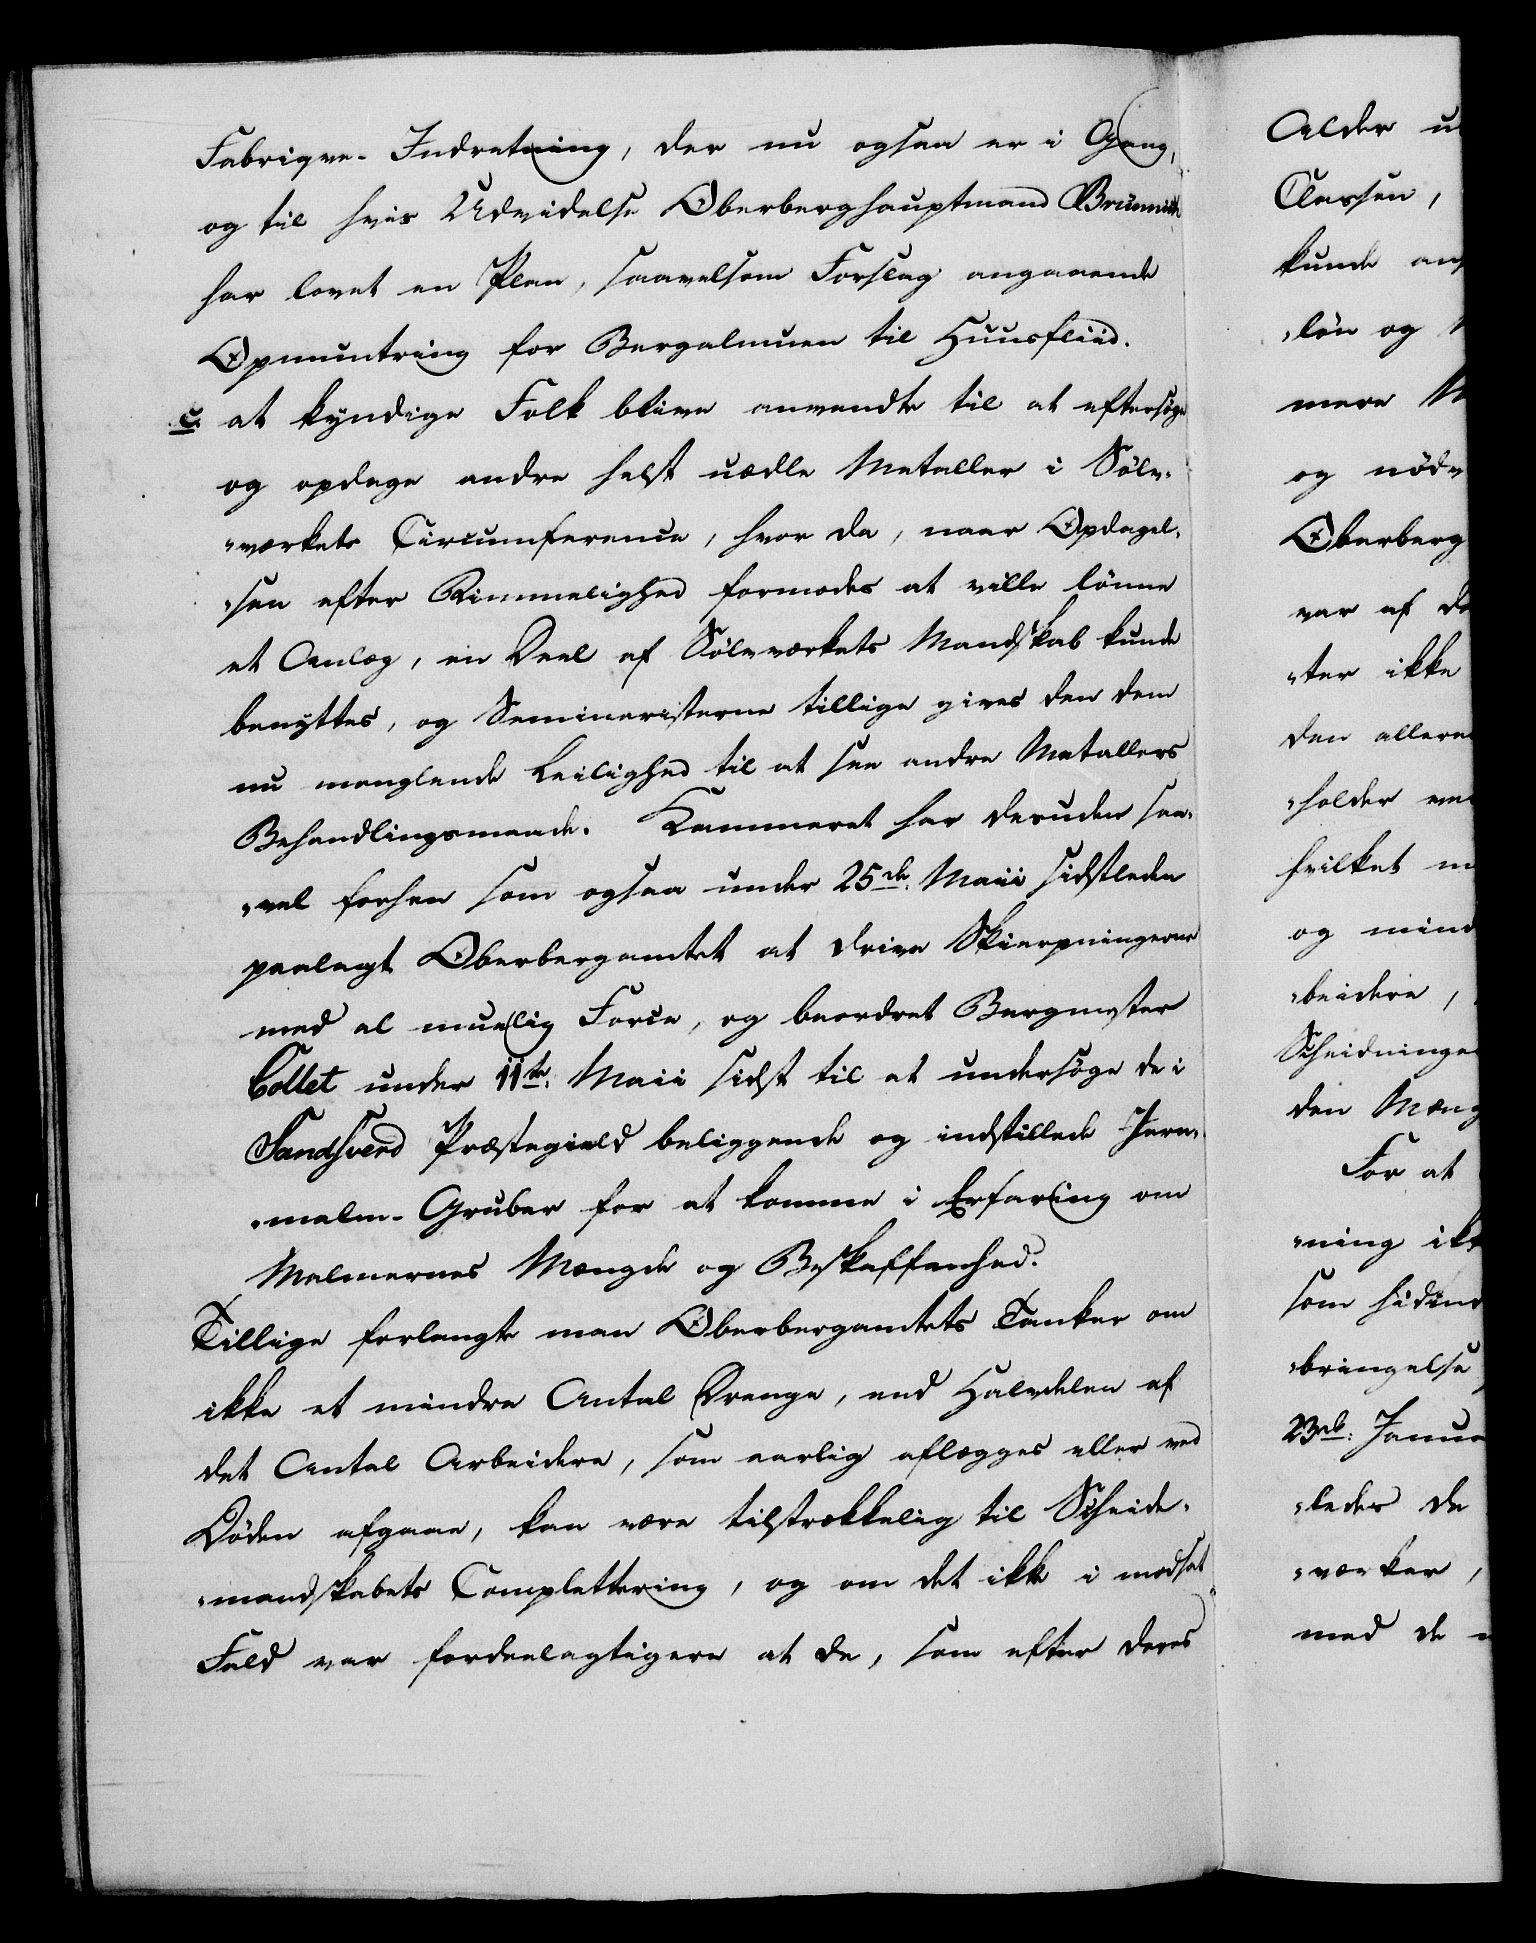 Fabriqve-Indretning, der nu ogsaa er i Gang,
og til hvis Udvidelse Oberberghauptmand Brünnich
har lovet en Plan, saavelsom Forslag angaaende
Opmuntring for Bergalmuen til Huusfliid.
c. at kyndige Folk blive anvendte til at eftersøge
og opdage andre helst uædle Metaller i Sølv-
"værkets Circumference, hvor da, naar Opdagel-
"sen efter Rimmelighed formodes at ville lønne
et Anlæg, en Deel af Sølvværkets Mandskab kunde
benyttes, og Seminaristerne tillige gives den dem
nu manglende Leilighed til at see andre Metallers
Behandlingsmaade. Kammeret har desuden saa-
"vel forhen som ogsaa under 25de Maii sidstleden
paalagt Oberbergamtet at drive Skierpningerne
med al muelig Force, og beordret Bergmester
Collet under 11te Maii sidst til at undersøge de i
Sandsverd Præstegield beliggende og indstillede Jern-
"malm-Gruber for at komme i Erfaring om
Malmernes Mængde og Beskaffenhed.
Tillige forlangte man Oberbergamtets Tanker om
ikke et mindre Antal Drenge, end Halvdelen af
det Antal Arbeidere, som aarlig aflægges eller ved
Døden afgaae, kan være tilstrækkelig til Scheide-
"mandskabets Complettering, og om det ikke i modsat
Fald var fordeelagtigere at de, som efter deres
Alder
Classen,
kunde
"løn og
mere
og
Oberberg
var af
"ter ikke
den
"holder
hvilket
og
"beidere,
Scheidninge
den Mæng
For at
"ning
som
"bringelse
23de
"ledes de
"værker,
med de